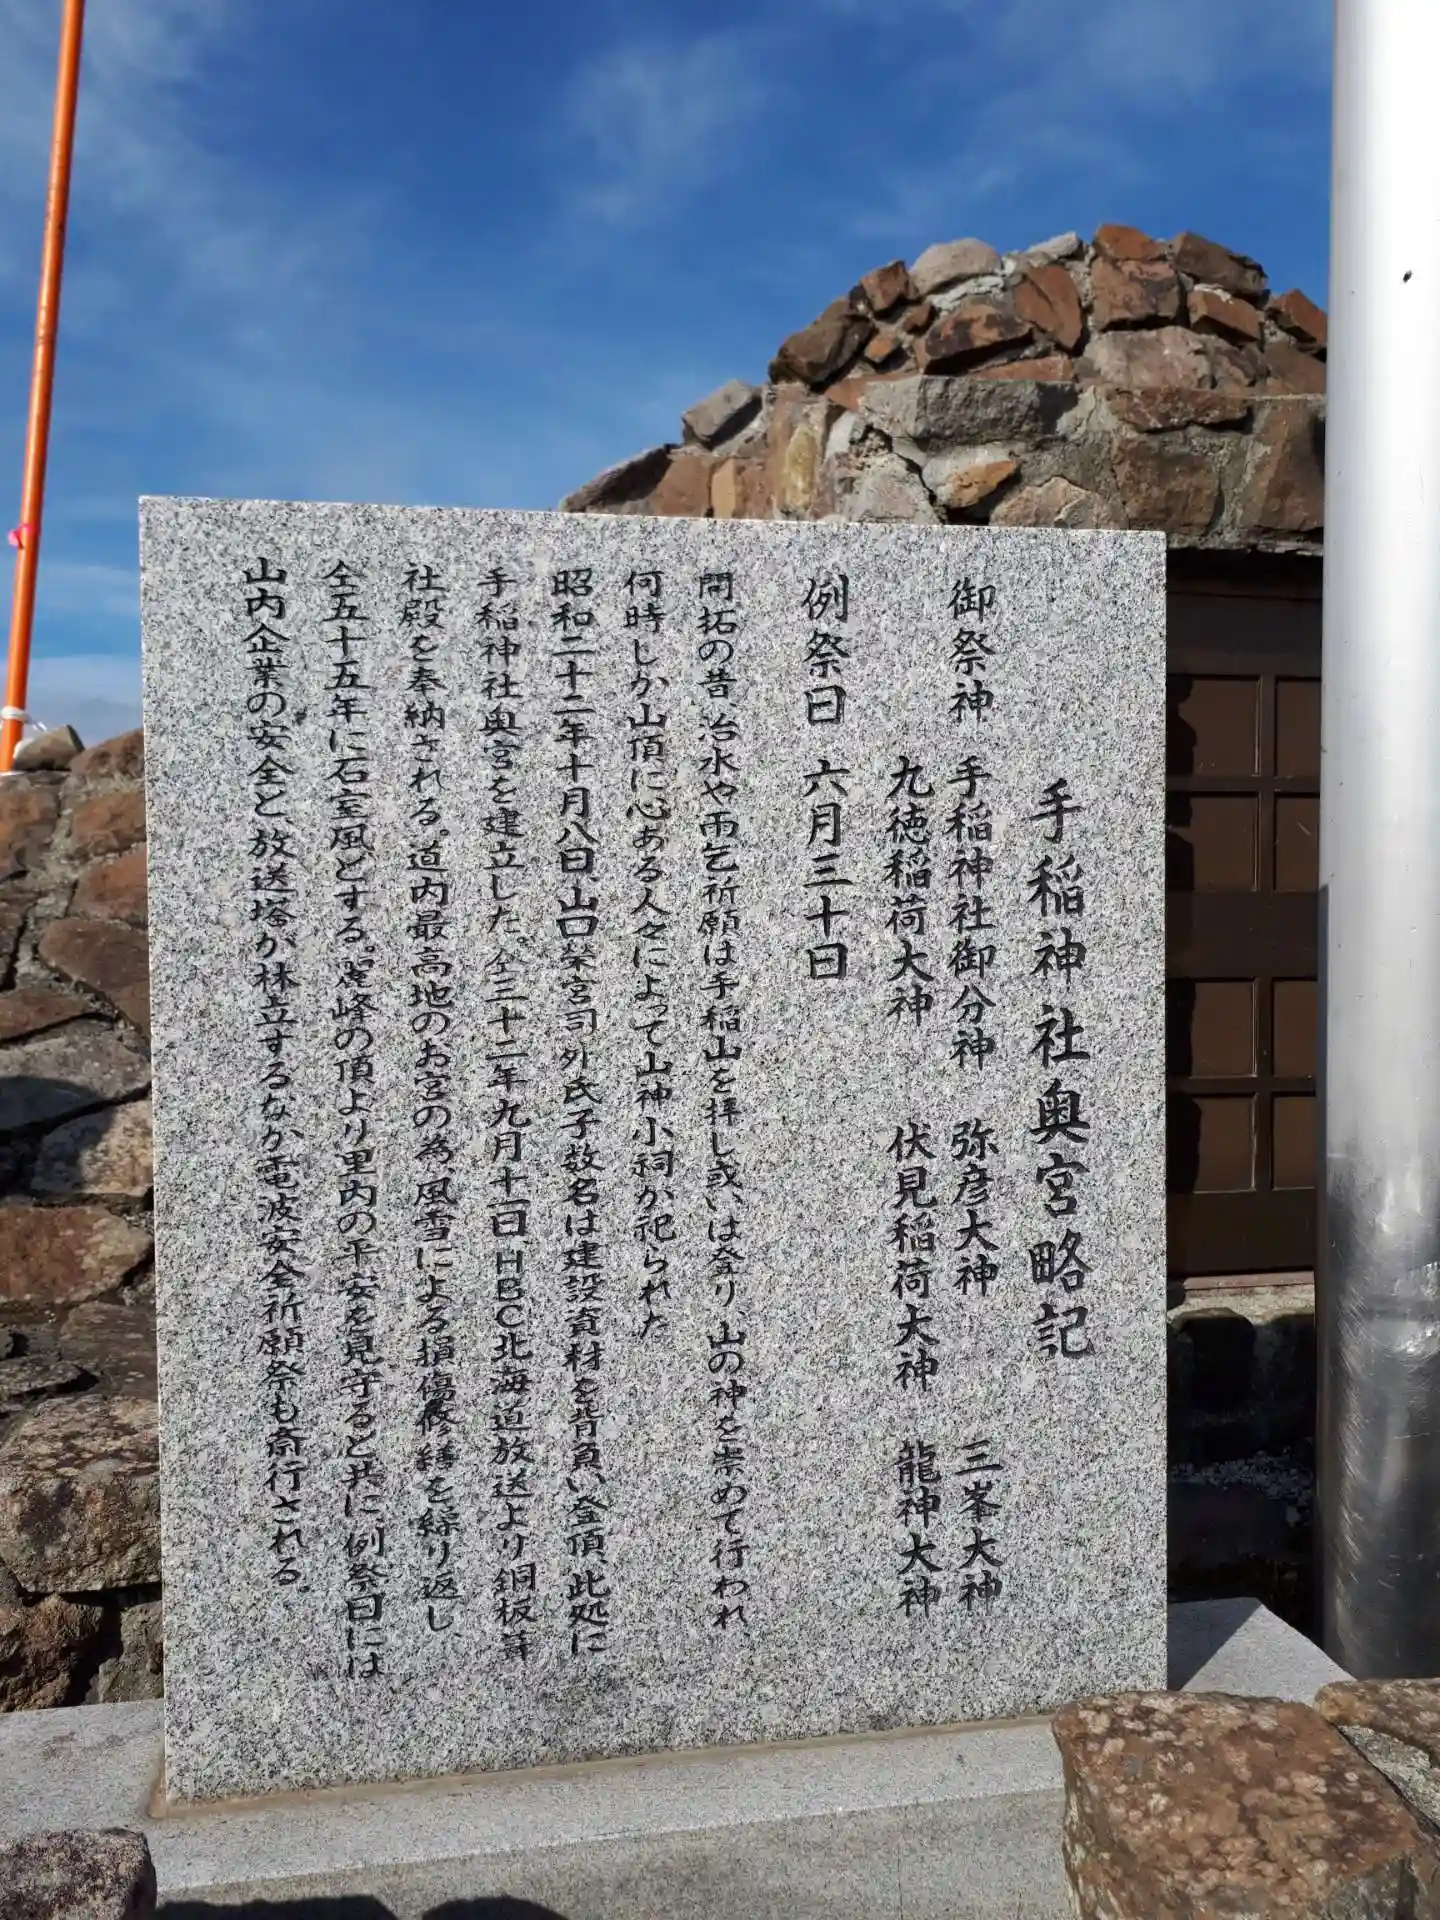 手稲神社奥宮略記
御祭神 手稲神社御分神 弥彦大神 三峯大神
九徳稲荷大神 伏見稲荷大神 龍神大神
例祭日 六月三十日
開拓の昔、治水や雨乞祈願は手稲山を拝し或いは登り、山の神を崇めて行われ、
何時しか山頂に心ある人々によって山神小祠が祀られた
昭和二十二年十月八日、山口栄宮司外氏子数名は建設資材を背負い登頂、此処に
手稲神社奥宮を建立した。仝三十二年九月十一日、HBC北海道放送より銅板葺
社殿を奉納される。道内最高地のお宮の為、風雪による損傷修繕を繰り返し、
仝五十五年に石室風とする。霊峰の頂より里内の平安を見守ると共に、例祭日には
山内企業の安全と、放送塔が林立するなか電波安全祈願祭も斎行される。